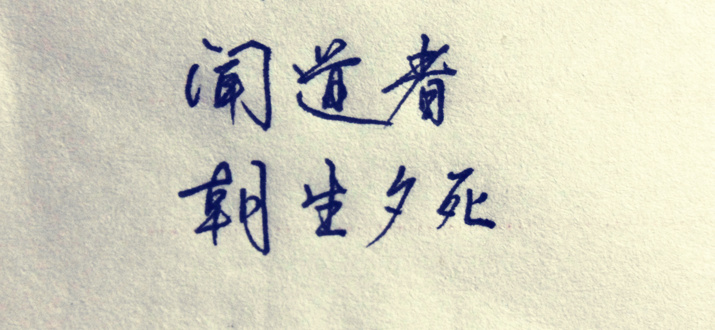 闻道者
朝生夕死